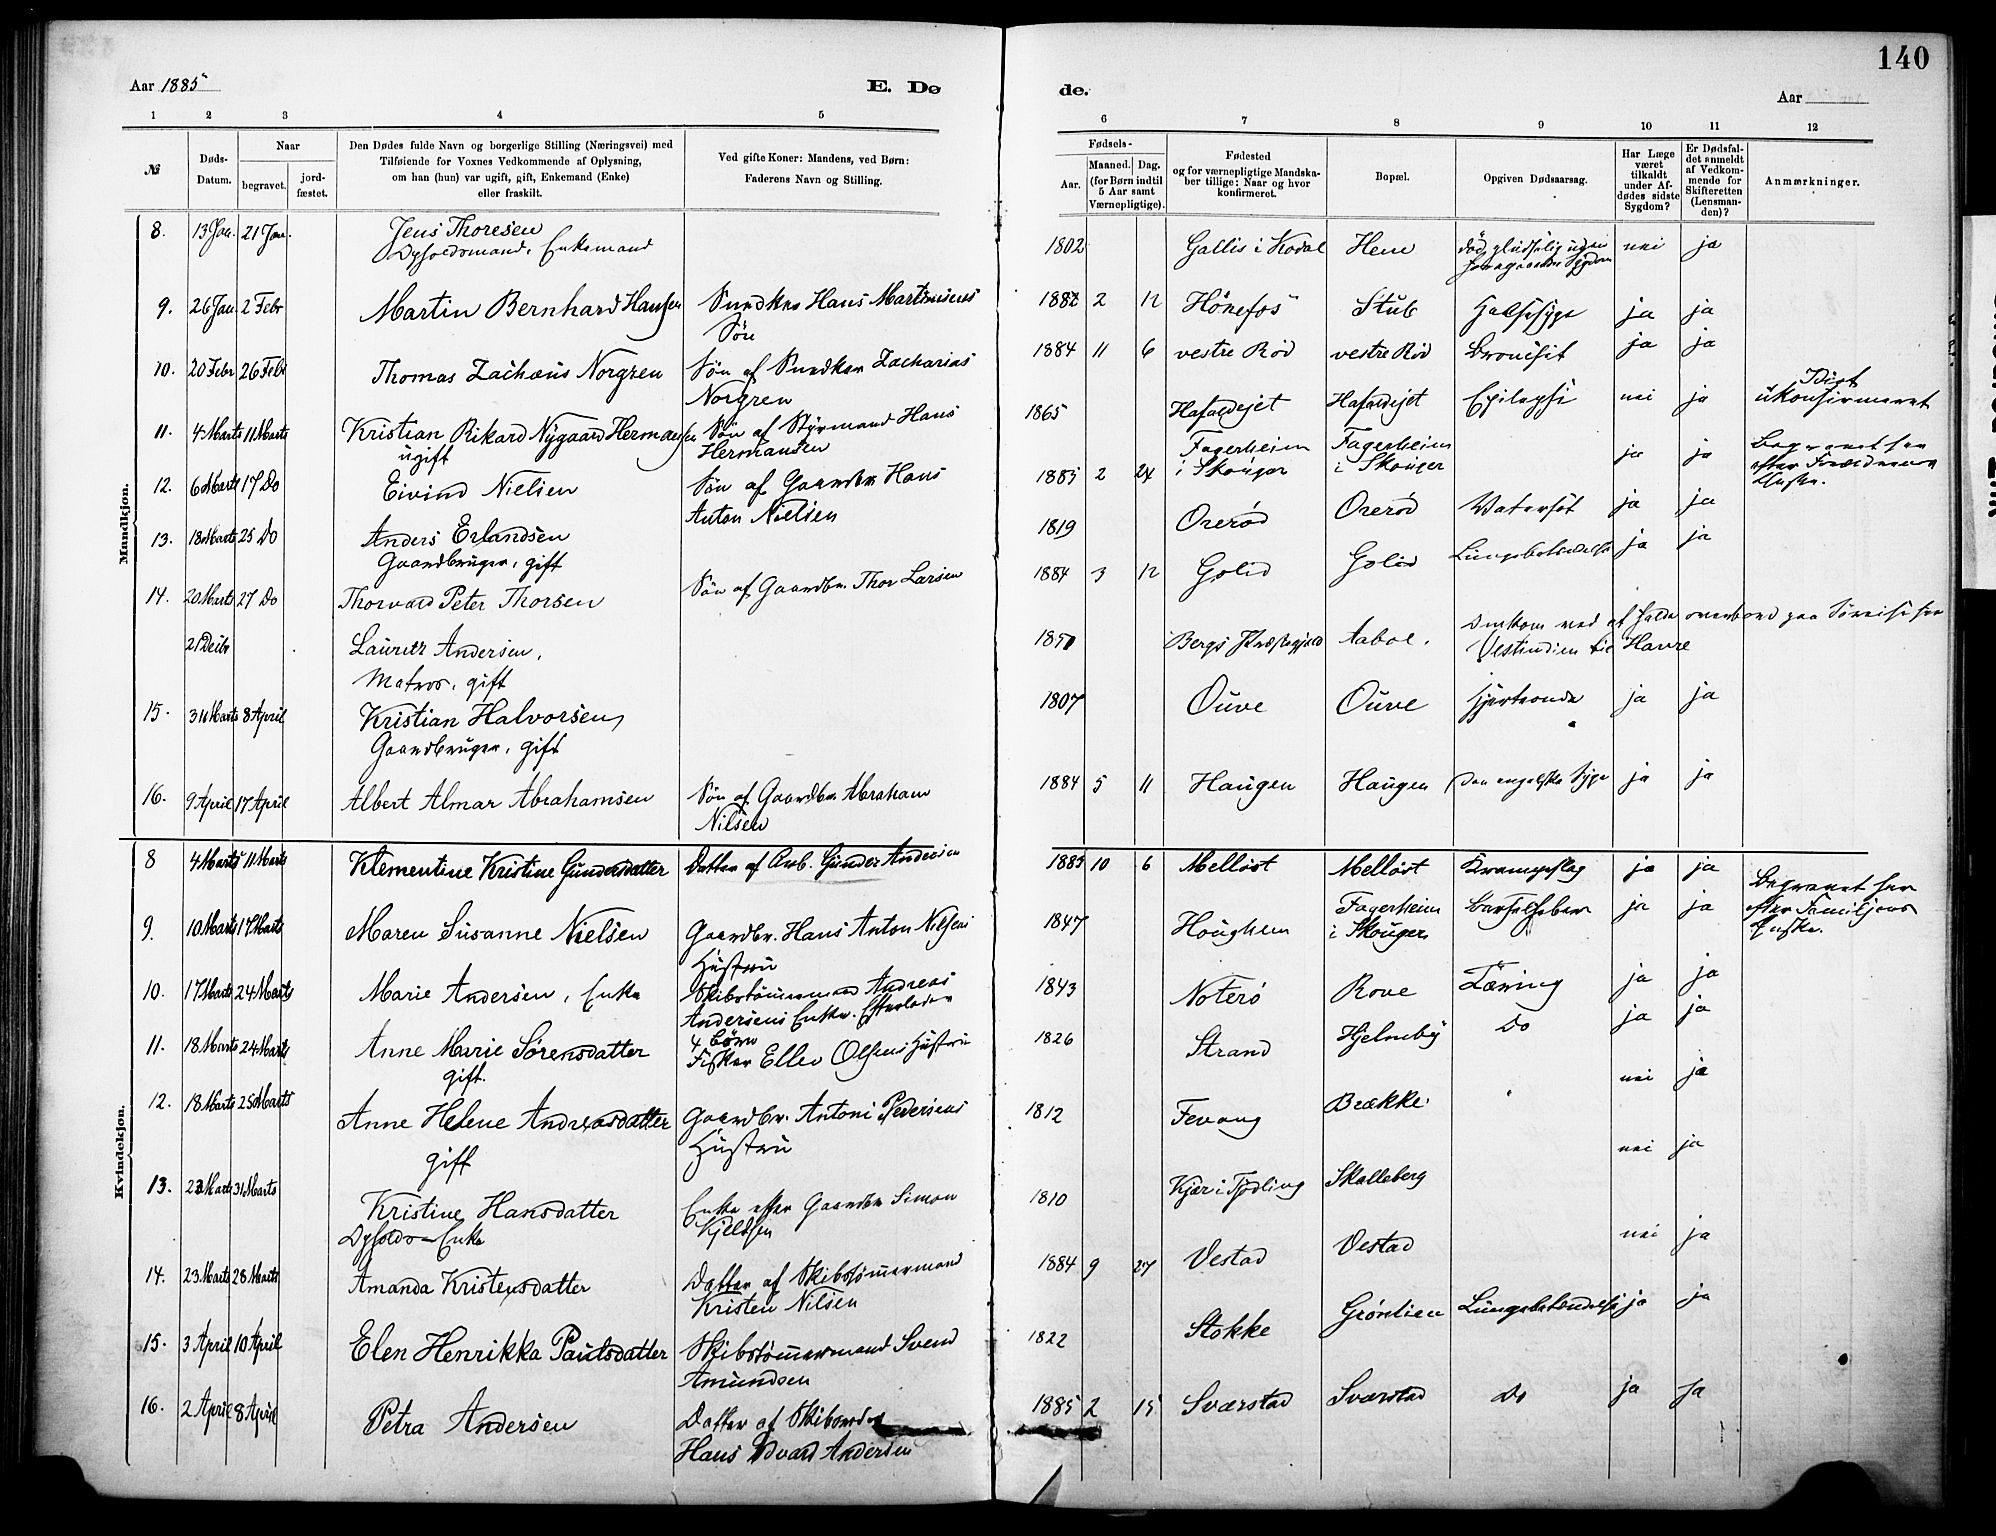 140
Aar 1885
E. Dø
de.
Aar
1 2 3 4 5
6 7 8 9 10 11 12
№
Døds-
Datum.
Naar
begravet.
jord-
fæstet.
Den Dødes fulde Navn og borgerlige Stilling (Næringsvei) med
Tilføiende for Voxnes Vedkommende af Oplysning,
om han (hun) var ugift, gift, Enkemand (Enke)
eller fraskilt.
Ved gifte Koner: Mandens, ved Børn:
Faderens Navn og Stilling.
Fødsels-
Aar.
Maaned.
Dag.
(for Børn indtil
5 Aar samt
Værnepligtige).
Fødested
og for værnepligtige Mandska-
ber tillige: Naar og hvor
konfirmeret.
Bopæl.
Opgiven Dødsaarsag.
Har Læge
været
tilkaldt
under Af-
dødes sidste
Sygdom?
Er Dødsfal-
det anmeldt
af Vedkom-
mende for
Skifteretten
(Lensman-
den)?
Anmærkninger.
Mandkjøn.
8. 13 Jan. 21 Jan. Jens Thoresen
Enkemand
1802 Gallis i Kodal Hem nei ja
9. 26 Jan 2 Febr Martin Bernhard Hansen Snedker Hans Martinsens
Søn
2 12 Hönefos Stub Halssyge ja ja
10. 20 Febr 26 Febr Thomas Zachæus Norgren Søn af Snedker Zacharias
Norgren
1884 11 6 vestre Rød vestre Rød Bronchit ja ja
11. 4 Marts 11 Marts Kristian Rikard Nygaard Hermansen Søn af Styrmand Hans
ugift Hermansen
1865 Epilepsi nei ja Idiot
ukonfirmeret
12. 6 Marts 17 Do Eivind Nielsen Søn af Gaardbr Hans
Anton Nielsen
1885 2 24 Fagerheim
i Skouger
Fagerheim
i Skouger
ja ja Begravet her
efter Forældrenes
Ønske.
13. 18 Marts 25 Do Anders Erlandsen
Gaardbruger, gift
1819 Orerød Orerød Vatersot ja ja
14. 20 Marts 27 Do Thorvald Peter Thorsen Søn af Gaardbr. Thor Larsen
1884 3 12 Golid Golid Lungebetændelse ja ja
21 Decbr Lauritz Andersen,
Matros, gift
Bergs Præstegjeld Omkom ved at falde overbord paa Seireise fra
Vestindien til Havre
15. 31 Marts 8 April Kristian Halvorsen,
Gaardbruger, gift
1807 Ouve Ouve Hjerteonde ja ja
16. 9 April 17 April Albert Almar Abrahamsen Søn af Gaardbr. Abraham
Nilsen
1884 5 11 Haugen Haugen Den engelske Syge ja ja
Kvindekjøn.
8 4 Marts 11 Marts Klementine Kristine Gundersdatter Datter af Arb. Gunder Andersen
10 6 Melløst Melløst Krampeslag ja ja
9. 10 Marts 17 Marts Maren Susanne Nielsen Gaardbr. Hans Anton Nilsens
Hustru
1847 Houghem Fagerheim
i Skouger
Barselfeber ja ja Begravet her
efter Familjens
Ønske.
10. 17 Marts 24 Marts Marie Andersen, Enke Skibstømmermand Andreas
Andersens Enke. Efterlader
4 Børn
1843 Noterö Rove Tæring ja ja
11. 18 Marts 24 Marts Anne Marie Sørensdatter
gift.
Fisker Ellev Olsens Hustru
1826 Strand Hjelmby Do ja ja
12. 18 Marts 25 Marts Anne Helene Andreasdatter
gift
Gaardbr. Antoni Pedersens
Hustru
1812 Fevang Brække nei ja
13. 31 Marts Kristine Hansdatter
Enke
Enke efter Gaardbr Simon
Kjeldsen
1810 Kjær i Tjødling Skalleberg nei ja
14. 23 Marts 28 Marts Amanda Kristensdatter Datter af Skibstømmermand
Kristen Nilsen
1884 9 27 Vestad Vestad nei ja
15. 3 April 10 April Elen Henrikka Paulsdatter Skibstømmermand Svend
Amundsen
1822 Stokke Grönlien Lungebetændelse ja ja
16. 2 April 8 April Petra Andersen Datter af
Hans Edvard Andersen
1885 2 15 Sværstad Sværstad Do ja ja